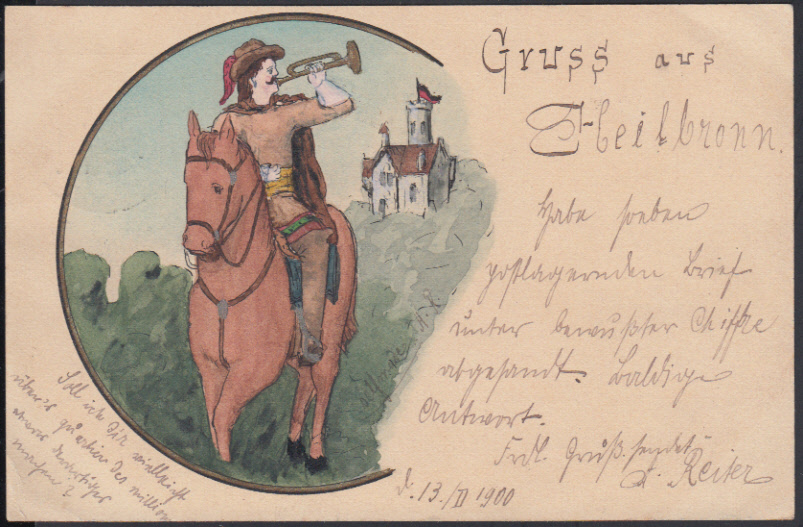 Gruss aus
Heilbronn.
Habe soeben
postlagernden Brief
unter bewußter Chiffre
abgesandt. Baldige
Antwort.
Frdl. Gruß sendet
Reiter
d. 13./II 1900
Soll ich Dir vielleicht
über's des
machen?